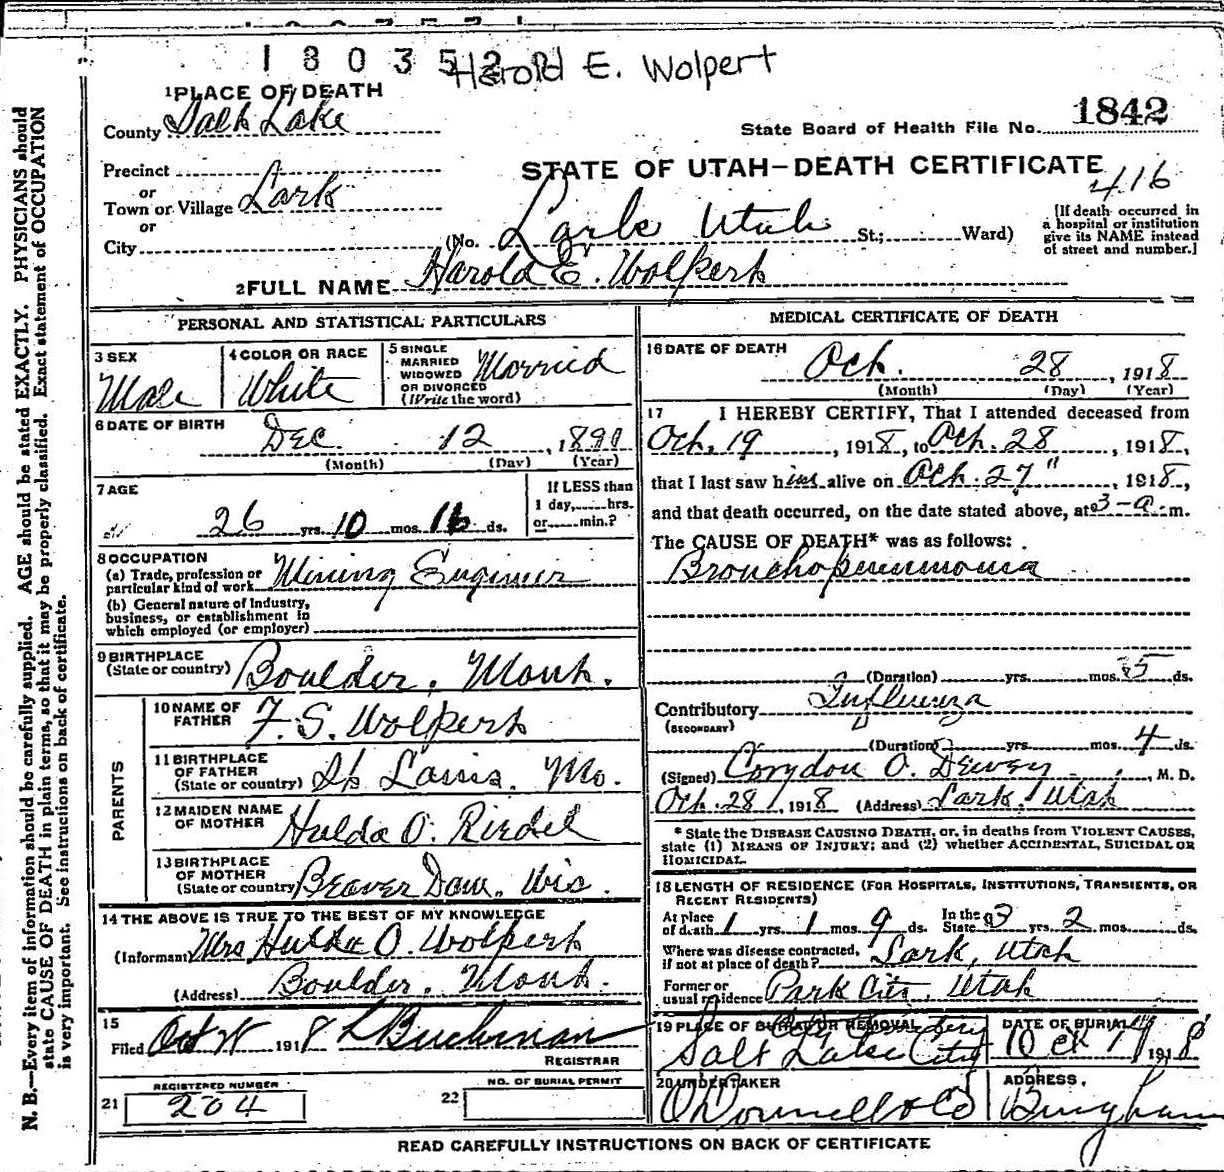 180352 Harold E. Wolpert
1 PLACE OF DEATH
County Salt Lake
State Board of Health File No. 1842
Precinct
or
Town or Village Lark
or
City
STATE OF UTAH—DEATH CERTIFICATE
416
(No. Lark Utah St.; Ward)
[If death occurred in
a hospital or institution
give its NAME instead
of street and number.]
2 FULL NAME Harold E. Wolpert
PERSONAL AND STATISTICAL PARTICULARS
3 SEX
Male
4 COLOR OR RACE
White
5 SINGLE
MARRIED
WIDOWED
OR DIVORCED
(Write the word)
Married
6 DATE OF BIRTH
Dec. 12, 1891
(Month) (Day) (Year)
7 AGE
26 yrs. 10 mos. 16 ds.
If LESS than
1 day, hrs.
or min.?
8 OCCUPATION
(a) Trade, profession or
particular kind of work Mining Engineer
(b) General nature of Industry,
business, or establishment in
which employed (or employer)
9 BIRTHPLACE
(State or country) Boulder, Mont.
PARENTS
10 NAME OF
FATHER F. S. Wolpert
11 BIRTHPLACE
OF FATHER
(State or country) St Louis, Mo.
12 MAIDEN NAME
OF MOTHER Hulda O. Riedel
13 BIRTHPLACE
OF MOTHER
(State or country) Beaver Dam, Wis.
14 THE ABOVE IS TRUE TO THE BEST OF MY KNOWLEDGE
(Informant Mrs Hulda O. Wolpert
(Address) Boulder, Mont.
15
Filed Oct 1918 Buchman
REGISTRAR
REGISTERED NUMBER
21 204
NO. OF BURIAL PERMIT
22
MEDICAL CERTIFICATE OF DEATH
16 DATE OF DEATH
Oct. 28, 1918
(Month) (Day) (Year)
17 I HEREBY CERTIFY, That I attended deceased from
Oct. 19, 1918, to Oct. 28, 1918,
that I last saw him alive on Oct. 27", 1918,
and that death occurred, on the date stated above, at 3-a.m.
The CAUSE OF DEATH* was as follows:
Bronchopneumonia
(Duration) yrs. mos. 5 ds.
Contributory Influenza
(SECONDARY)
(Duration) yrs. mos. 4 ds.
(Signed) Corydon O. Dewey, M. D.
Oct. 28, 1918 (Address) Lark, Utah
* State the DISEASE CAUSING DEATH, or, in deaths from VIOLENT CAUSES,
state (1) MEANS OF INJURY; and (2) whether ACCIDENTAL, SUICIDAL OR
HOMICIDAL.
18 LENGTH OF RESIDENCE (FOR HOSPITALS, INSTITUTIONS, TRANSIENTS, OR
RECENT RESIDENTS)
At place
of death 1 yrs. 1 mos. 9 ds. In the
State 3 yrs. 2 mos. ds.
Where was disease contracted,
if not at place of death? Lark, Utah
Former or
usual residence Park City, Utah
19 PLACE OF BURIAL OR REMOVAL
Salt Lake City
DATE OF BURIAL
1918
20 UNDERTAKER
O'Donnell & Co
ADDRESS,
Bingham
READ CAREFULLY INSTRUCTIONS ON BACK OF CERTIFICATE
N. B.—Every item of information should be carefully supplied. AGE should be stated EXACTLY. PHYSICIANS should
state CAUSE OF DEATH in plain terms, so that it may be properly classified. Exact statement of OCCUPATION
is very important. See instructions on back of certificate.